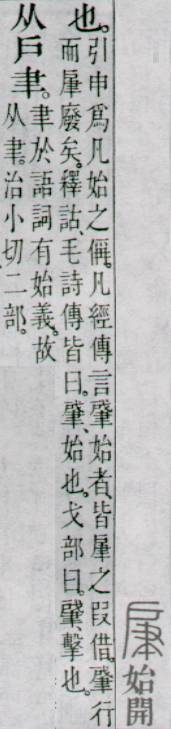 肁始開
也。
引申爲凡始之偁。凡經傳言肈始者、皆肁之叚借。肈行
而肁廢矣。釋詁、毛詩傳皆曰。肈、始也。戈部曰。肈、擊也。
从戶聿。
聿於語詞有始義。故
从聿。治小切。二部。